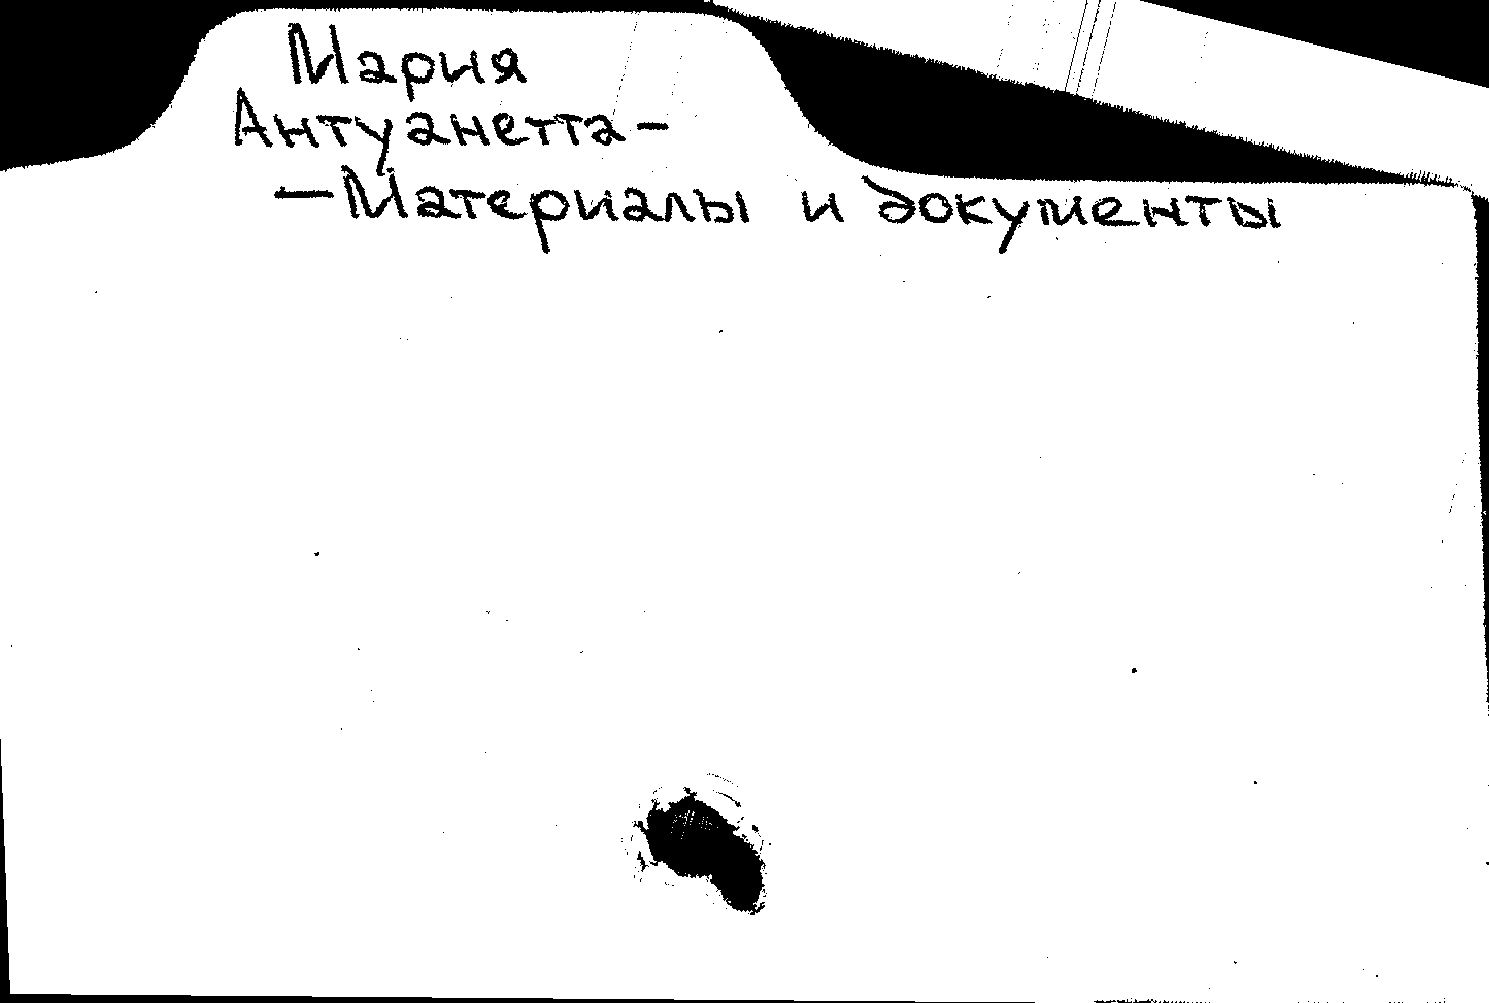 Мария
Антуанетта -
- Материалы и документы